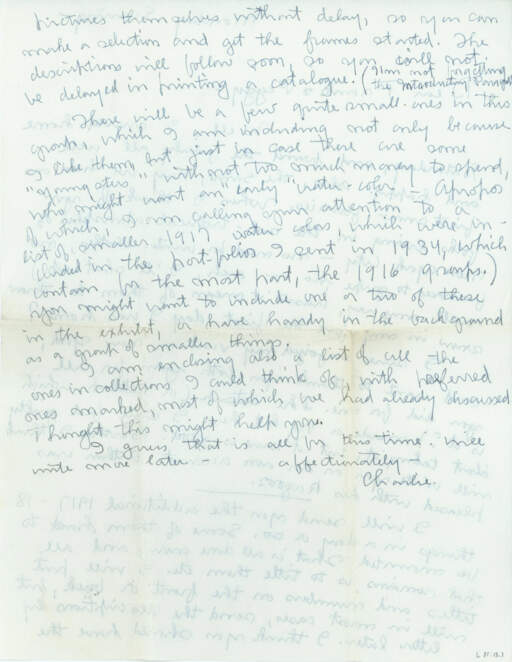 pictures themselves without delay, so you can
make a selection and get the frames started. The
descriptions will follow soon, so you will not
be delayed in printing a catalogue. (I'm not forgetting
the Interesting
There will be a few quite small ones in this
group, which I am including not only because
I like them, but just in case there are some
"youngsters" without too much money to spend,
who might want an "early" water-color - Apropos
of which, I am calling your attention to a
list of smaller 1917 water colors, which were in-
cluded in the portfolios I sent in 1934, (which
contain for the most part, the 1916 groups.)
You might want to include one or two of these
in the exhibit, or have handy in the background
as a group of smaller things.
I am enclosing also a list of all the
ones in collections I could think of, with preferred
ones marked, most of which we had already discussed
Thought this might help you.
I guess that is all for this time. Will
write more later - affectionately -
Charlie.